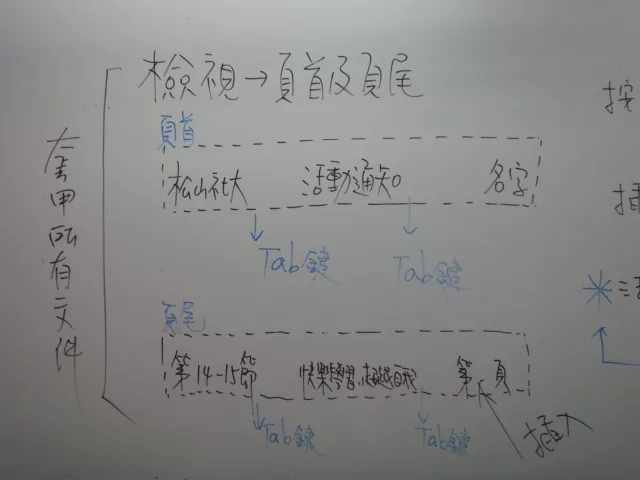 檢視→頁首及頁尾
頁首
松山社大 活動通知 名字
Tab鍵 Tab鍵
頁尾
第14-15節 快樂學習,超越自我 第 頁
Tab鍵 Tab鍵
插入
套用所有文件
按
插
*活